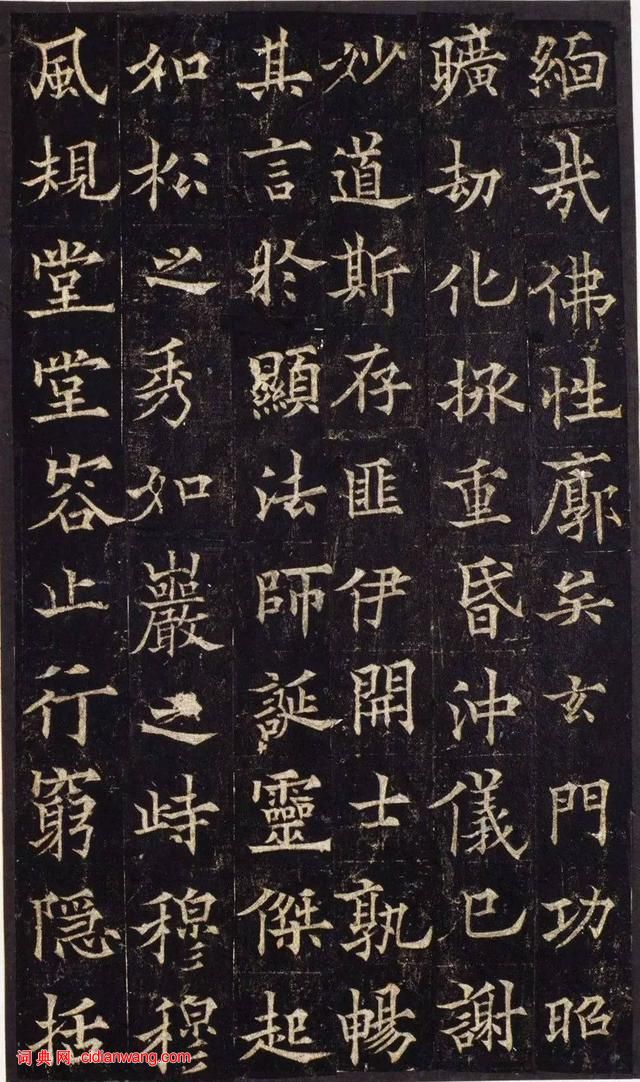 緬哉佛性廓矣玄門功昭
曠劫化拯重昏沖儀已謝
妙道斯存匪伊開士孰暢
其言於顯法師誕靈傑起
如松之秀如巖之峙穆穆
風規堂堂容止行窮隱括
词典网:cidianwang.com